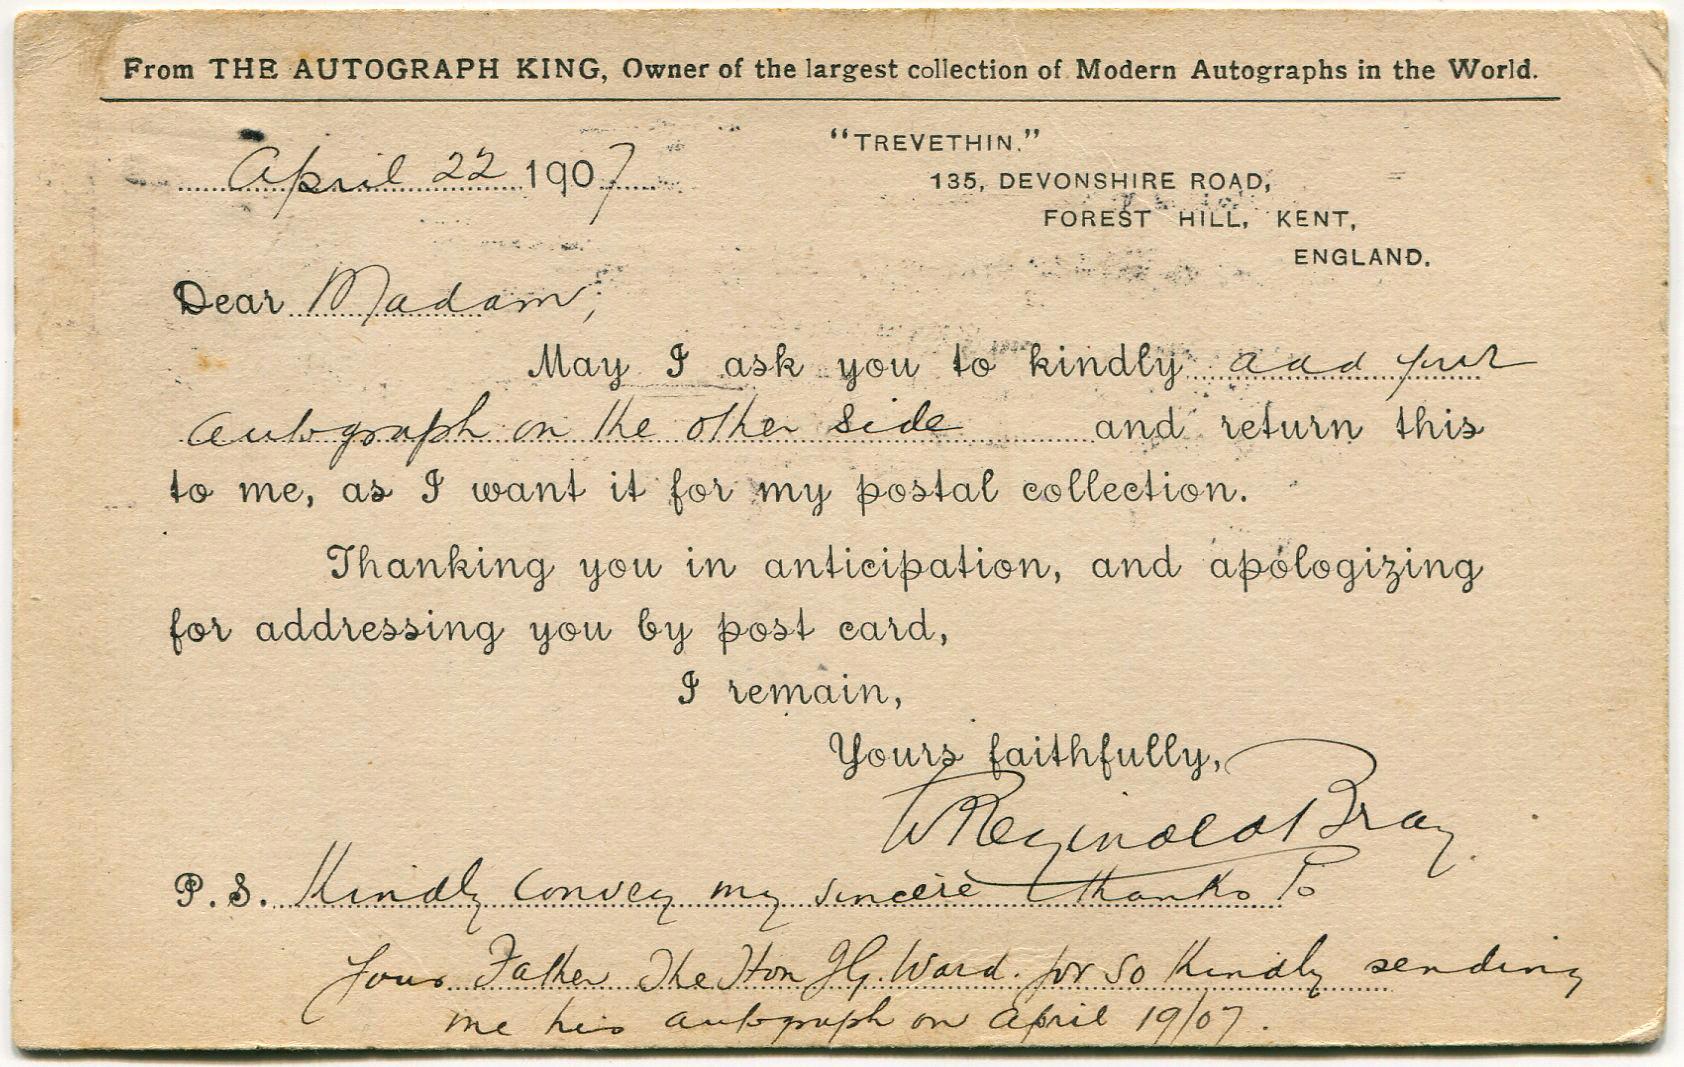 From THE AUTOGRAPH KING, Owner of the largest collection of Modern Autographs in the World.
April 22 1907
"TREVETHIN."
135, DEVONSHIRE ROAD,
FOREST HILL, KENT,
ENGLAND.
Dear Madam,
May I ask you to kindly add your
autograph on the other side and return this
to me, as I want it for my postal collection.
Thanking you in anticipation, and apologizing
for addressing you by post card,
I remain,
Yours faithfully,
W Reginald Bray
P.S. Kindly convey my sincere thanks to
your Father The Hon J.G. Ward. for so kindly sending
me his autograph on April 19/07.